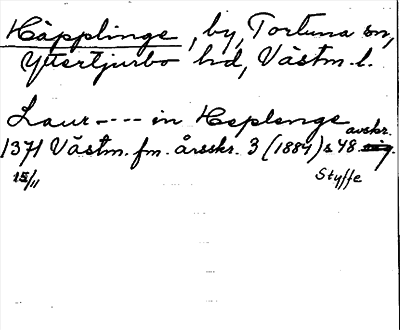 Häpplinge, by, Tortuna sn,
Yttertjurbo hd, Västm. l.
Laur---- in Heplenge
avskr.
1371 Västm. fm. årsskr. 3 (1884) s 48
15/11 Styffe